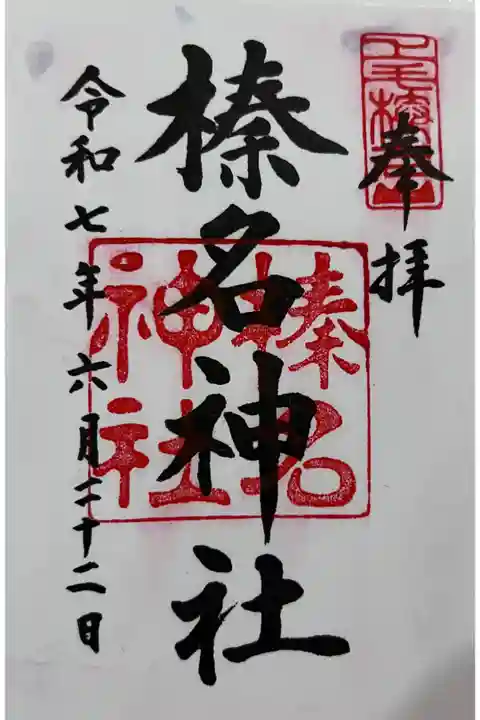 奉拝
榛名神社
榛名神社
令和七年六月二十二日